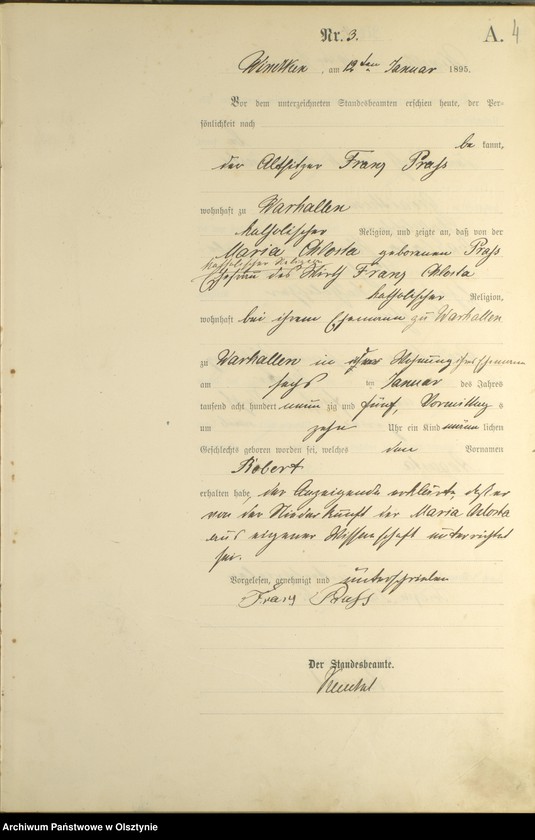 Nr. 3.
A. 4
am 12ten Januar 1895.
Vor dem unterzeichneten Standesbeamten erschien heute, der Per-
sönlichkeit nach
be kannt,
der Altsitzer Franz Prass
wohnhaft zu Warkallen
katholischer Religion, und zeigte an, daß von der
Maria Chlosta geborenen Prass
katholischer Religion
Ehefrau des Wirth Franz Chlosta
katholischer Religion,
wohnhaft bei ihrem Ehemann zu Warkallen
zu Warkallen in Wohnung ihres Ehemann
am sechs ten Januar des Jahres
tausend acht hundert neun zig und fünf, Vormittag s
um zehn Uhr ein Kind männ lichen
Geschlechts geboren worden sei, welches den Vornamen
Robert
erhalten habe, der Anzeigende erklärte, daß er
von der Niederkunft der Maria Chlosta
aus eigener Wissenschaft unterrichtet
sei.
Vorgelesen, genehmigt und unterschrieben
Franz Prass
Der Standesbeamte.
Archiwum Państwowe w Olsztynie